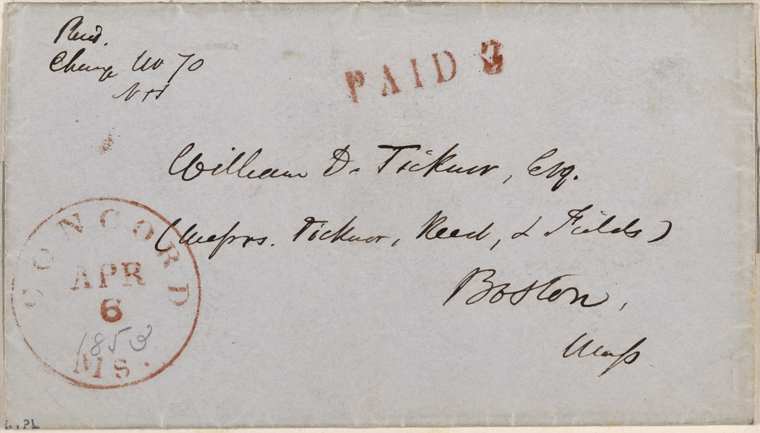 Paid.
Charge No 70
PAID 3
William D. Ticknor, Esq.
(Messrs. Ticknor, Reed, & Fields)
Boston,
Mass
CONCORD
APR
6
1853
MS.